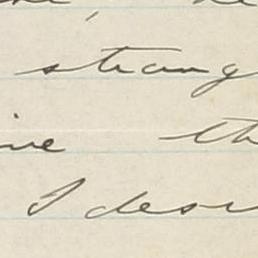 strang
ive th
I desi